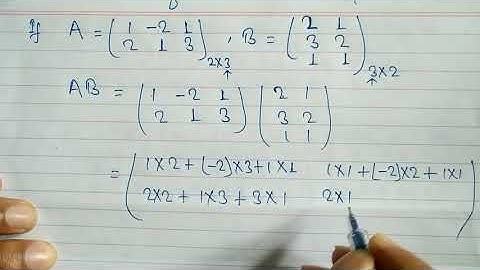 If A = ( 1 -2 1 ), B = ( 2 1 )
2 1 3 2×3 3 2
1 1 3×2
AB = ( 1 -2 1 ) ( 2 1 )
2 1 3 3 2
1 1
= ( 1×2+(-2)×3+1×1 1×1+(-2)×2+1×1 )
2×2+1×3+3×1 2×1